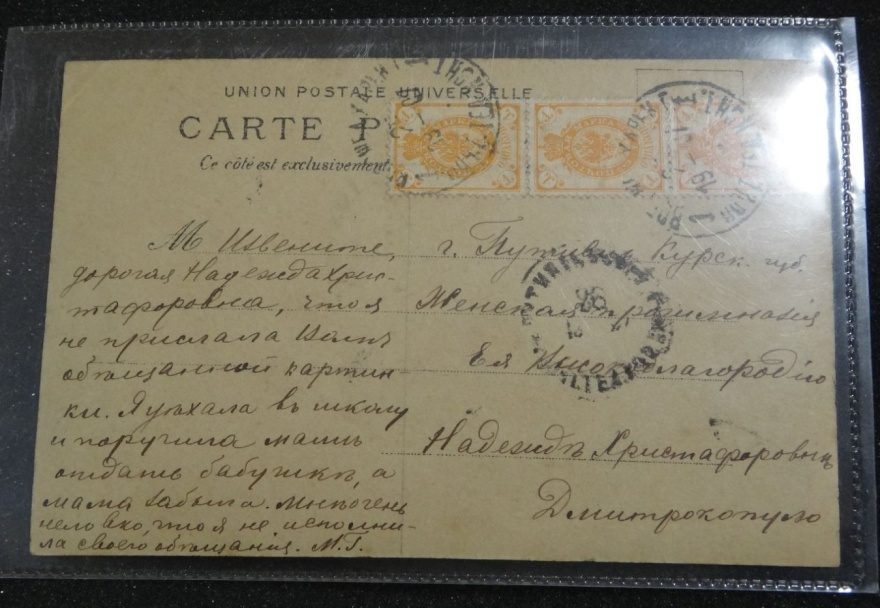 UNION POSTALE UNIVERSELLE
CARTE P
Ce côté est exclusivement
М Извените,
дорогая Надежда Хрис-
тафоровна, что я
не прислала Вамъ
обѣщанной картин-
ки. Я уѣхала въ школу
и поручила мамѣ
отдать бабушкѣ, а
мама забыла. Мнѣ очень
неловко, что я не исполни-
ла своего обѣщанія. М.Г.
г. Путивль Курск. губ.
Женская прогимназія
Ея Высокоблагородію
Надеждѣ Христафоровнѣ
Дмитрокопуло